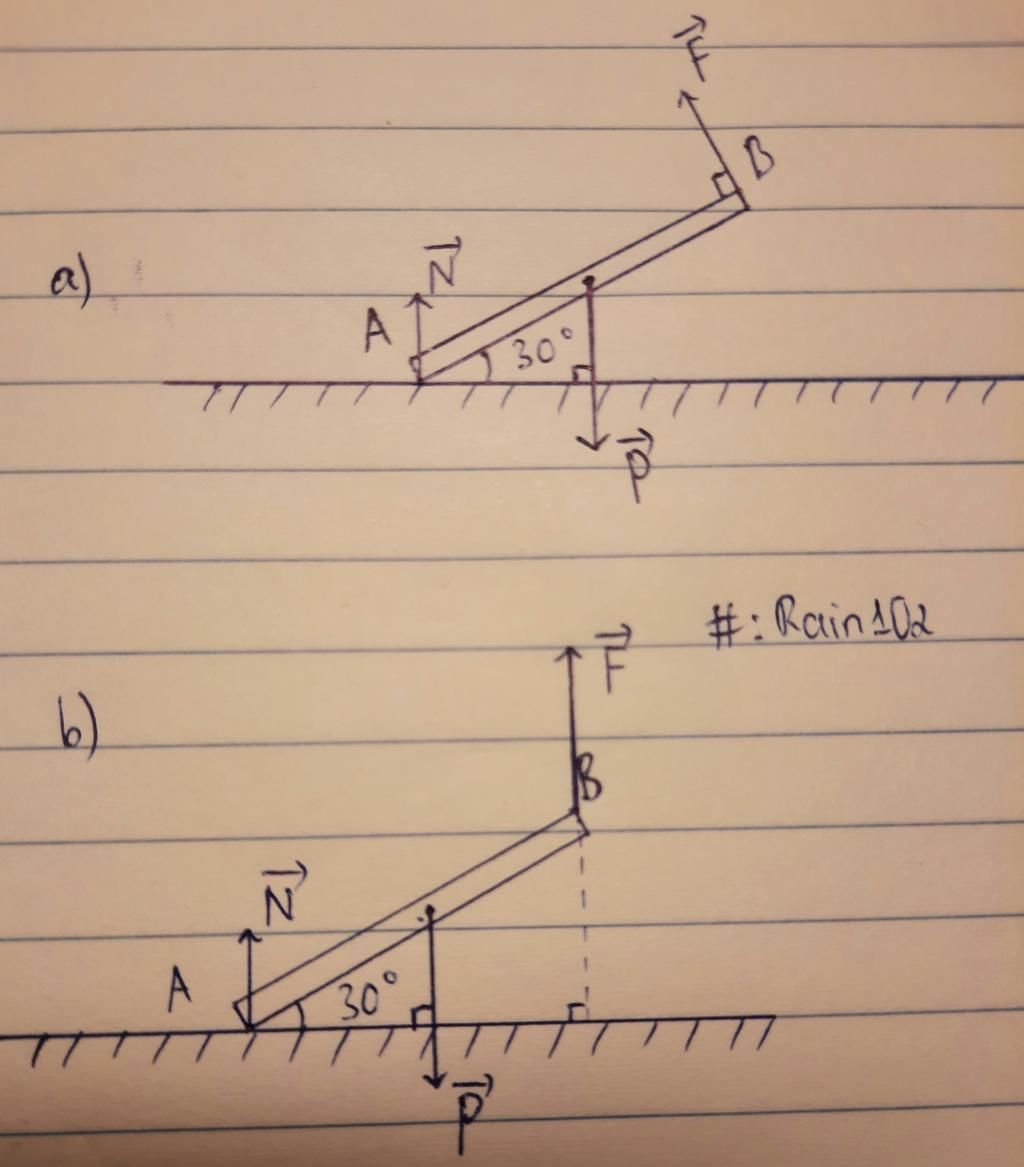 F⃗
B
a)
N⃗
A
30°
P⃗
#: Rain102
F⃗
b)
B
N⃗
A
30°
P⃗